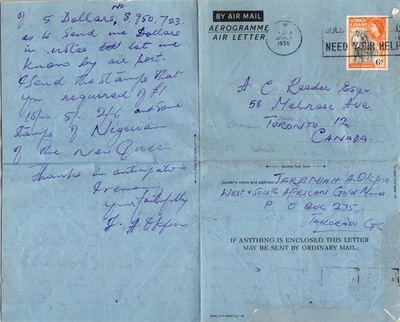 No.
of 5 Dollars, 8,950,723.
as to send me Dollars
in notes let me
know by air post.
Send the stamps that
you required of £1
10/- 5/- 2/6 and some
stamps of Nigerian
of the New Queen
Thanks in anticipation
I remain
Yours faithfully
J. A. Okpu
BY AIR MAIL
AÉROGRAMME
AIR LETTER
1956
NEED YOUR HELP
GOLD COAST
6d
A C Reeder Esqr
58 Melrose Ave
TORONTO 12
CANADA.
Sender's name and address:- JEREMIAH A. Okpu
West & South AFRICAN Gold Mines
P O BOX 275,
TAKORADI G.C.
IF ANYTHING IS ENCLOSED THIS LETTER
MAY BE SENT BY ORDINARY MAIL.